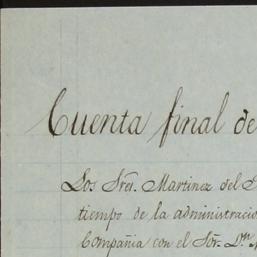 Cuenta final de
Los Sres. Martinez del
tiempo de la administracio
Compañia con el Sor. Dn.